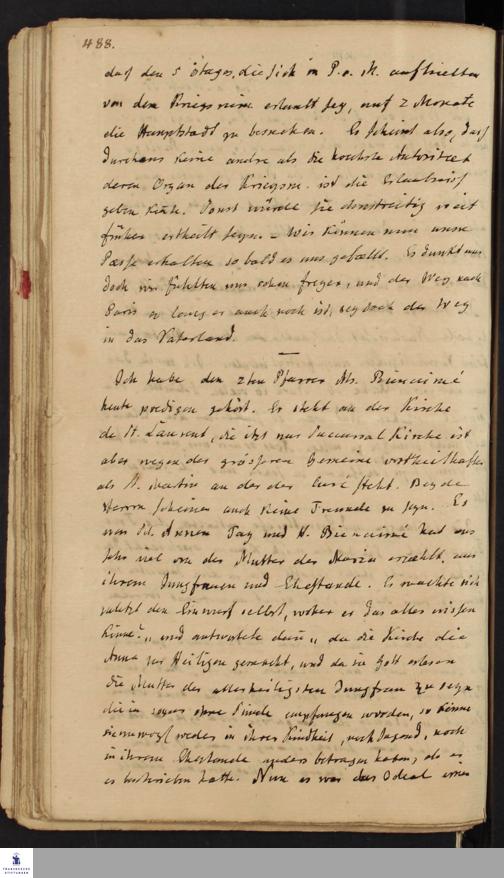 488.
daß den 5 Otages, die sich in P. a. M. aufhielten
von dem Kriegsmin. erlaubt sey, auf 2 Monate
die Hauptstadt zu besuchen. Es scheint also, daß
durchaus keine andre als die hoechste Autoritaet
deren Organ der Kriegsm. ist die Erlaubniß
geben kann. Sonst würde sie ohnstreitig weit
früher ertheilt seyn. – Wir können nun unsre
Pässe erhalten so bald es uns gefaellt. Es dünkt uns
doch wir fühlten uns schon freyer, und der Weg nach
Paris so lang er auch noch ist, sey doch der Weg
in das Vaterland.
Ich habe den 2ten Pfarrer Mr. Bienaimé
heute predigen gehört. Er steht an der Kirche
de St. Laurent, die itzt nur Succursal Kirche ist
aber wegen der grösseren Gemeine vortheilhafter
als St. Martin an der der Curé steht. Beyde
Herrn scheinen auch keine Freunde zu seyn. Es
war St. Annen Tag und H. Bienaimé hat uns
sehr viel von der Mutter der Maria erzaehlt, aus
ihrem Jungfrauen und Ehestande. Er machte sich
zuletzt den Einwurf selbst, woher er das alles wissen
könne? „ und antwortete dann „ da die Kirche die
Anna zur Heiligen gemacht, und da sie Gott erlesen
die Mutter der allerheiligsten Jungfrau zu seyn
die in sogar ohne Sünde empfangen worden, so könne
sie weder in ihrer Kindheit, noch Jugend, noch
in ihrem Ehestande anders betragen haben, als er
es beschrieben hatte. Nun es war das Ideal eines
FRANCKESCHE STIFTUNGEN